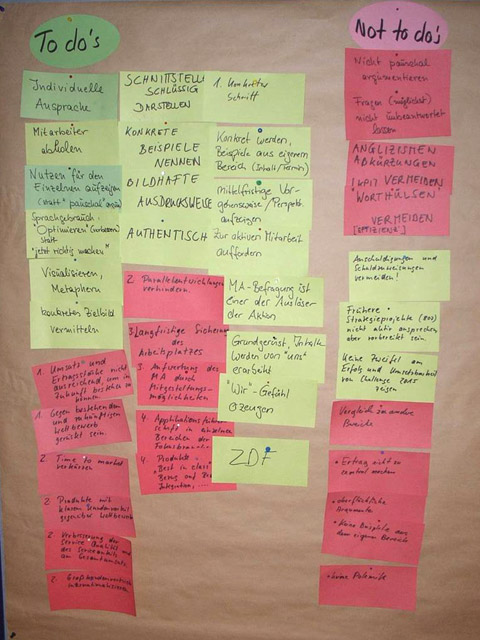 To do's
Individuelle
Ansprache
Mitarbeiter
abholen
Nutzen für den
Einzelnen aufzeigen
Sprachgebrauch:
"Optimieren"
statt
"jetzt richtig machen"
Visialisieren,
Metaphern
konkretes Zielbild
vermitteln
1. Umsatz und
Ertragsstärke nicht
ausreichend, um in
Zukunft bestehen zu
können
1. Gegen bestehenden
und zukünftigen
Wettbewerb
gerüstet sein
2. Time to market
verkürzen
2. Produkte mit
klarem Kundenvorteil
gegenüber Wettbewerb
2. Verbesserung der
Service Qualität und
des Serviceanteils
am Gesamtumsatz
2.
SCHNITTSTELLE
SCHLÜSSIG
DARSTELLEN
KONKRETE
BEISPIELE
NENNEN
BILDHAFTE
AUSDRUCKSWEISE
AUTHENTISCH
2. Parallelentwicklungen
verhindern.
3. Langfristige Sicherung
des
Arbeitsplatzes
3. Aufwertung des
MA durch
Mitgestaltungs-
möglichkeiten
4. Applikationsführer-
schaft in einzelnen
Bereichen der
4. Produkte:
"Best in class"
Bezug auf
Integration, ....
1. Konkreter
Schritt
Konkret werden,
Beispiele aus eigenem
Bereich (Inhalt/Termin)
Mittelfristige Vor-
gehensweise/Perspekt.
aufzeigen
Zur aktiven Mitarbeit
auffordern
MA-Befragung ist
einer der Auslöser
der Aktion
Grundgerüst, Inhalte
werden von "uns"
erarbeitet
"Wir"-Gefühl
erzeugen
ZDF
Not to do's
Nicht pauschal
argumentieren
Fragen (möglichst)
nicht unbeantwortet
lassen
ANGLIZISMEN
ABKÜRZUNGEN
VERMEIDEN
WORTHÜLSEN
VERMEIDEN
[EFFIZIENZ]
Anschuldigungen und
Schuldzuweisungen
vermeiden!
Frühere
Strategieprojekte
nicht aktiv ansprechen
aber vorbereitet sein
Keine Zweifel am
Erfolg und Umsetzbarkeit
von Challenge 2005
zeigen
Vergleich in andere
Bereiche
• Ertrag nicht zu
• oberflächliche
Argumente
• Keine Beispiele aus
dem eigenen Bereich
• keine Polemik